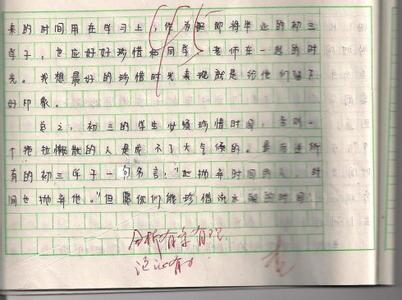 来的时间用在学习上,作为即将毕业的初三
学子,也应好好珍惜和同学、老师在一起的时
光。我想最好的珍惜时光表现就是给他们留下
好印象。
总之,初三的学生必须珍惜时间,否则一
个拖拉懒散的人是成不了大气候的。最后送所
有的初三学子一句名言:"抛弃时间的人,时
间也抛弃他。"但愿你们能珍惜流水般的时间!
分析有条有理
论证有力